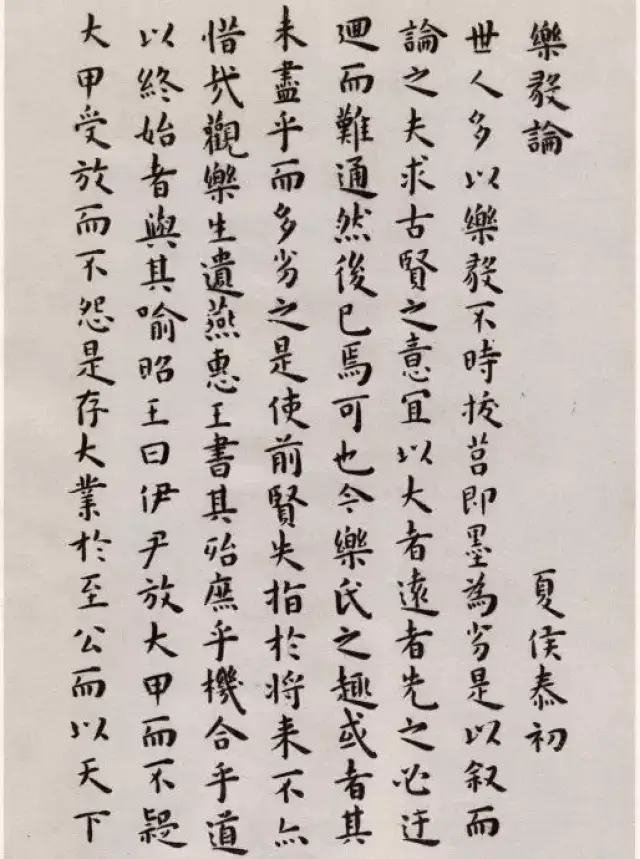 樂毅論 夏侯泰初
世人多以樂毅不時拔莒即墨為劣是以叙而
論之夫求古賢之意宜以大者遠者先之必迂
迴而難通然後已焉可也今樂氏之趣或者其
未盡乎而多劣之是使前賢失指於將來不亦
惜哉觀樂生遺燕惠王書其殆庶乎機合乎道
以終始者與其喻昭王曰伊尹放大甲而不疑
大甲受放而不怨是存大業於至公而以天下